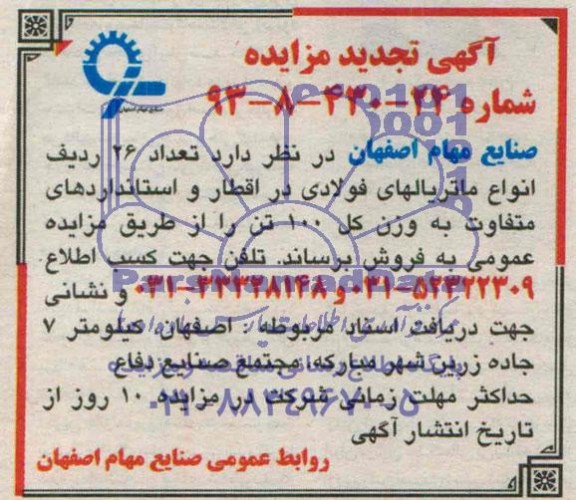 آگهی تجدید مزایده
شماره ۲۴-۴۳۰-۸-۹۳
صنایع مهام اصفهان در نظر دارد تعداد ۲۶ ردیف
انواع ماتریالهای فولادی در اقطار و استانداردهای
متفاوت به وزن کل ۱۰۰ تن را از طریق مزایده
عمومی به فروش برساند. تلفن جهت کسب اطلاع
۰۳۱-۵۲۳۲۲۳۰۹ و ۰۳۱-۳۳۳۲۸۱۴۸ و نشانی
جهت دریافت اسناد مربوطه: اصفهان، کیلومتر ۷
جاده زرین شهر مبارکه، مجتمع صنایع دفاع
حداکثر مهلت زمانی شرکت در مزایده ۱۰ روز از
تاریخ انتشار آگهی
روابط عمومی صنایع مهام اصفهان
ParsNamadData
۰۲۱-۸۸۳۴۹۶۷۰-۵